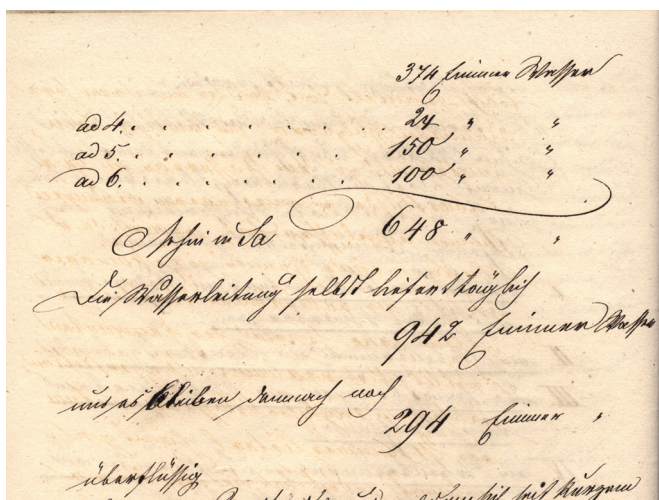 374 Eimer Wasser
ad 4. . . . . . . . . . 24 " "
ad 5. . . . . . . . . 150 " "
ad 6. . . . . . . . . 100 " "
Mithin in Sa 648 " "
Die Wasserleitung selbst liefert täglich
942 Eimer Wasser
und es bleiben demnach noch
294 Eimer "
überflüssig
sich seit Kurzem